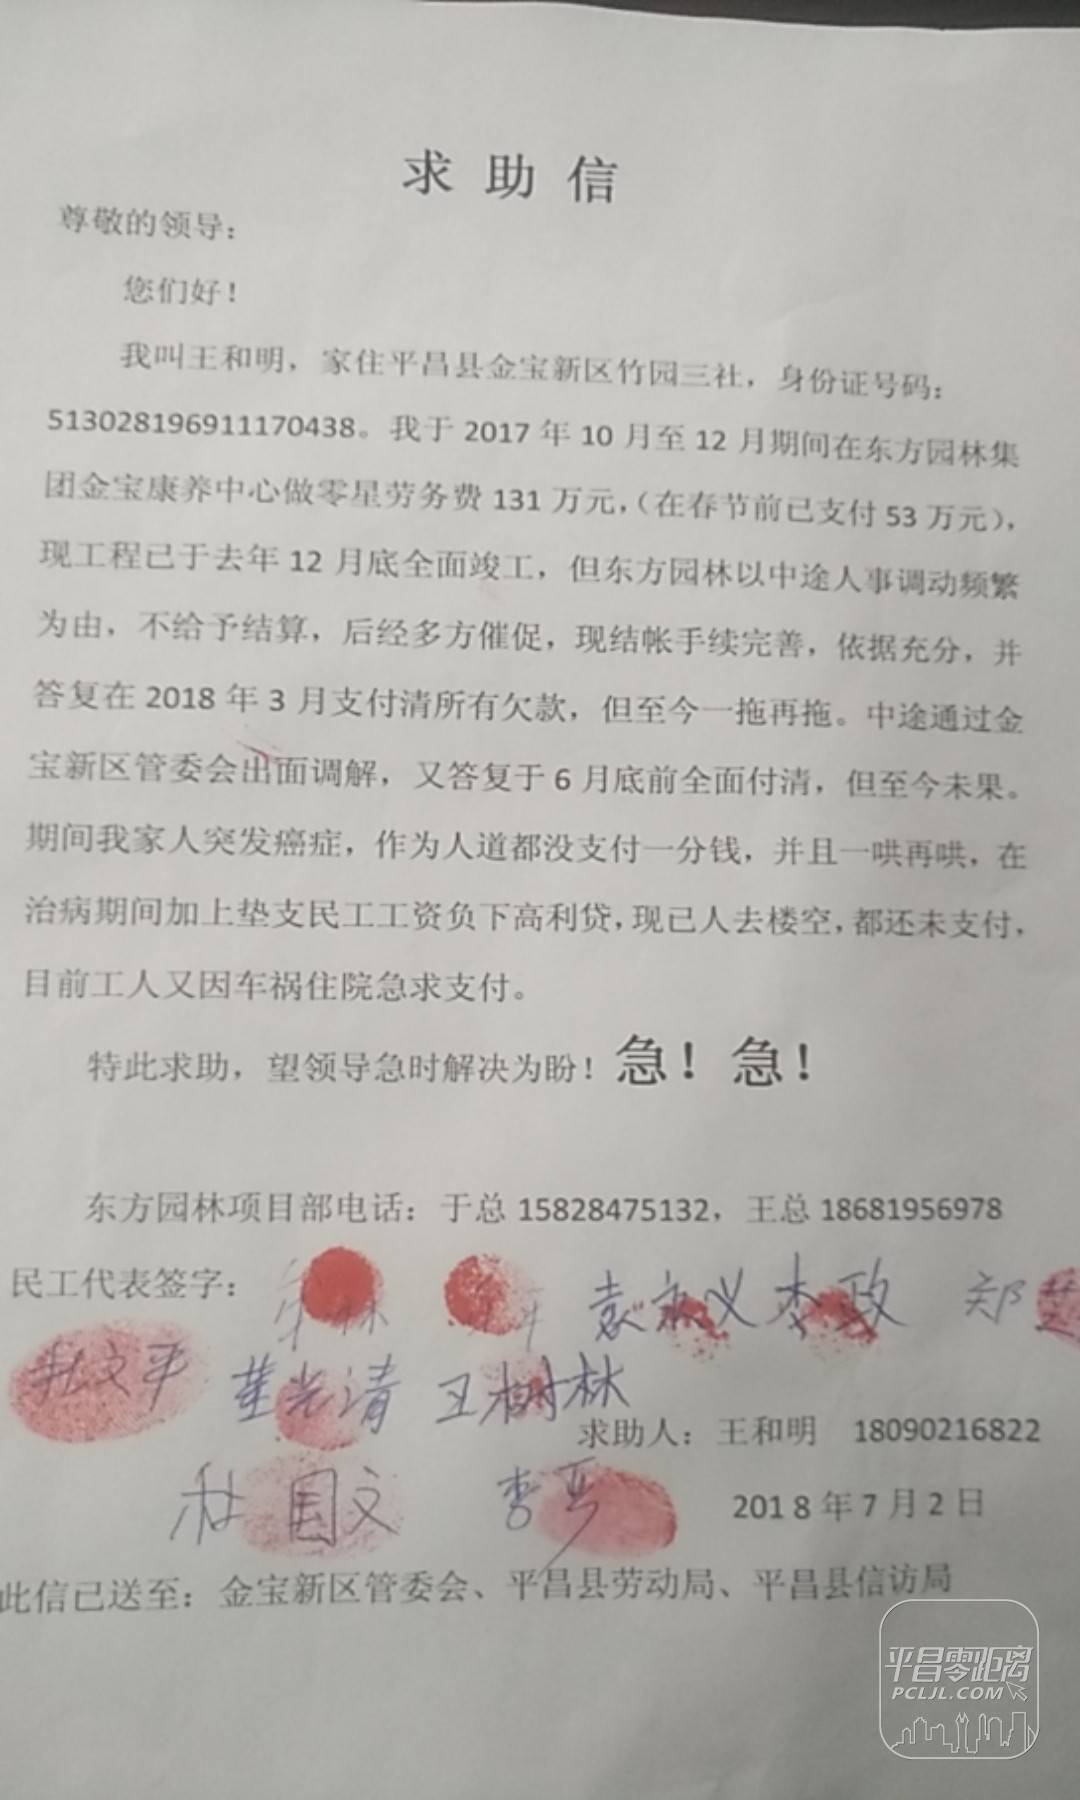 求助信
尊敬的领导：
您们好！
我叫王和明，家住平昌县金宝新区竹园三社，身份证号码：
513028196911170438。我于2017年10月至12月期间在东方园林集
团金宝康养中心做零星劳务费131万元，（在春节前已支付53万元），
现工程已于去年12月底全面竣工，但东方园林以中途人事调动频繁
为由，不给予结算，后经多方催促，现结帐手续完善，依据充分，并
答复在2018年3月支付清所有欠款，但至今一拖再拖。中途通过金
宝新区管委会出面调解，又答复于6月底前全面付清，但至今未果。
期间我家人突发癌症，作为人道都没支付一分钱，并且一哄再哄，在
治病期间加上垫支民工工资负下高利贷，现已人去楼空，都还未支付，
目前工人又因车祸住院急求支付。
特此求助，望领导急时解决为盼！急！急！
东方园林项目部电话：于总15828475132，王总18681956978
民工代表签字：
袁永义 李政 郑
文平 董光清 王树林
求助人：王和明 18090216822
杜国文 李
2018年7月2日
此信已送至：金宝新区管委会、平昌县劳动局、平昌县信访局
平昌零距离
PCLJL.COM